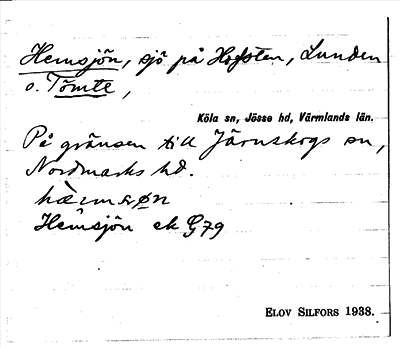 Hemsjön, sjö på Hofsten, Lunden
o. Tömte,
Köla sn, Jösse hd, Värmlands län.
På gränsen till Järnskogs sn,
Nordmarks hd.
Hemsjön ek G79
ELOV SILFORS 1938.